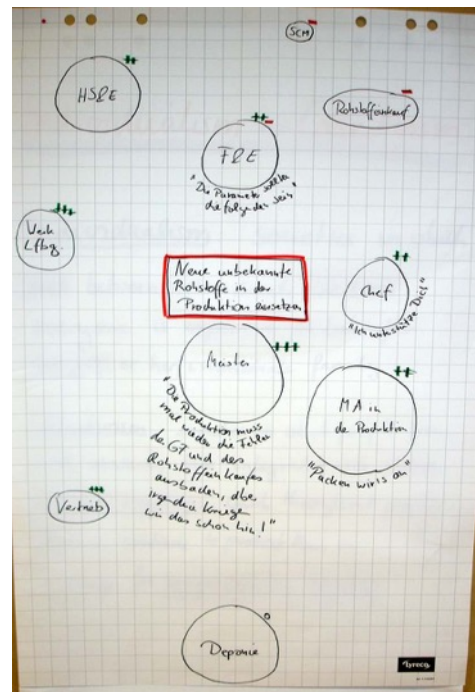 SCM
HS&E
Rohstoffeinkauf
F&E
"Die Parameter sollten
die folgenden sein"
Neue unbekannte
Rohstoffe in der
Produktion einsetzen
Chef
"Ich unterstütze Dich"
Meister
"Die Produktion muss
mal wieder die Fehler
der GF und des
Rohstoffeinkaufes
ausbaden, aber
irgendwie kriegen
wir das schon hin!"
MA in
der Produktion
"Packen wir's an"
Vertrieb
Deponie
lyreco